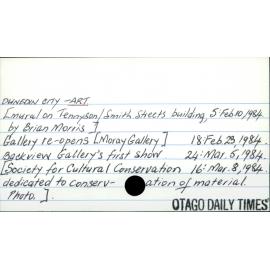 DUNEDIN CITY - ART.
[mural on Tennyson/Smith Streets building, 5: Feb 10, 1984.
by Brian Morris ]
Gallery re-opens [Moray Gallery] 18: Feb 23, 1984.
Backview Gallery's first show 24: Mar. 5, 1984.
[Society for Cultural Conservation 16: Mar. 8, 1984.
dedicated to conserv- ation of material.
Photo. ]
OTAGO DAILY TIMES